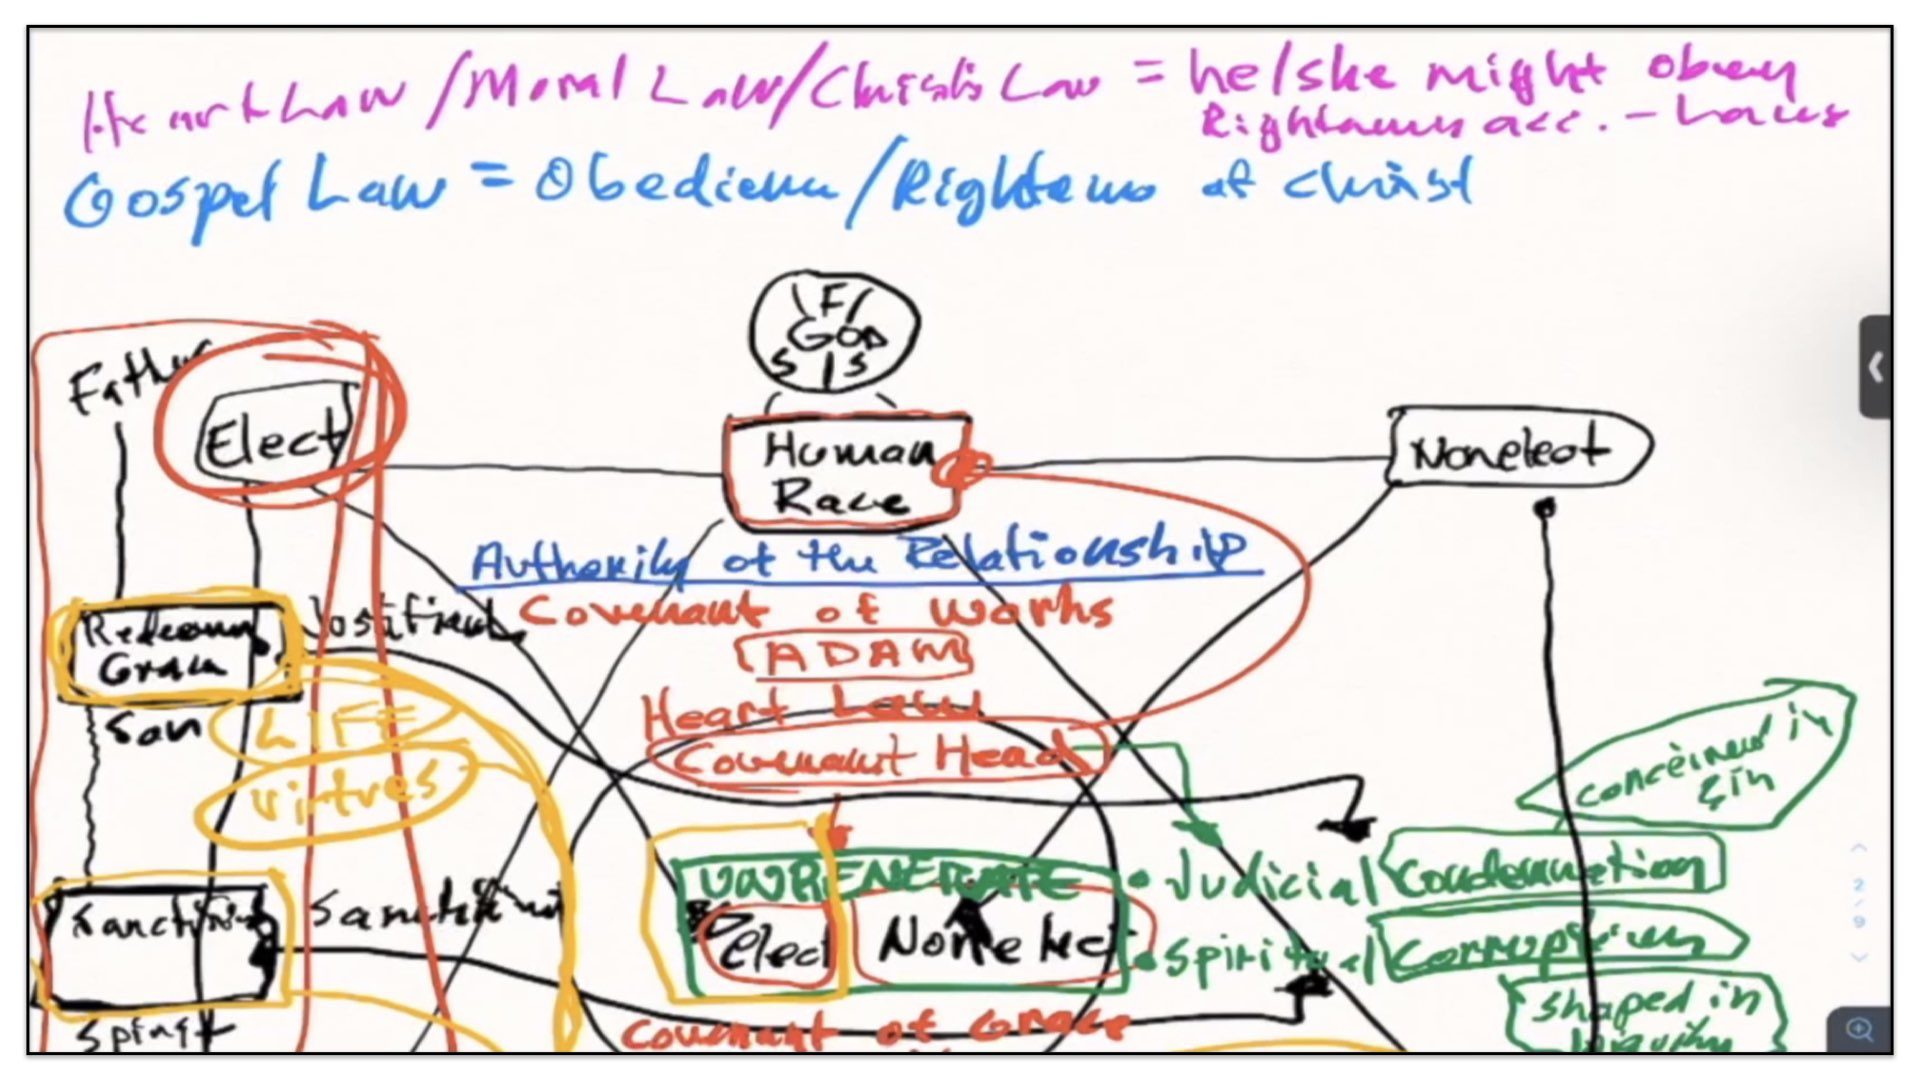 Heart Law / Moral Law / Christ's Law = he/she might obey
Righteous acc. - Laws
Gospel Law = Obedience / Righteous of Christ
F
GOD
S IS
Father
Elect
Human
Race
Nonelect
Authority of the Relationship
Covenant of Works
ADAM
Heart Law
Covenant Head
Redeeming
Grace
Justified
Son
LIFE
Virtues
conceived in
sin
UNREGENERATE
Elect
Nonelect
• Judicial Condemnation
• Spiritual Corruption
shaped in
iniquity
Spirit
Covenant of Grace
2/9